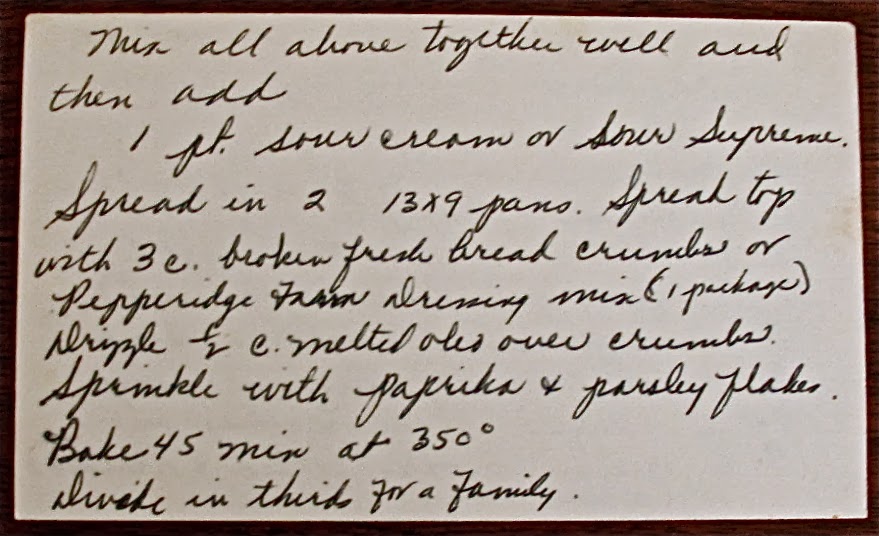 Mix all above together well and
then add
1 pt. sour cream or Sour Supreme.
Spread in 2 13x9 pans. Spread top
with 3 c. broken fresh bread crumbs or
Pepperidge Farm Dressing mix (1 package)
Drizzle ½ c. melted oleo over crumbs.
Sprinkle with paprika & parsley flakes.
Bake 45 min at 350°
Divide in thirds for a family.